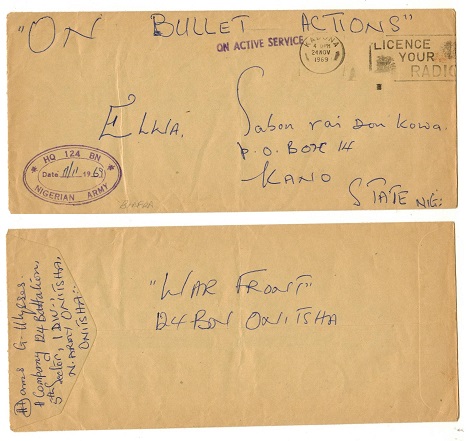 "ON BULLET ACTIONS"
ON ACTIVE SERVICE
KADUNA
4 PM
24 NOV
1969
LICENCE
YOUR
RADIO
ELWA.
Sabon rai Don Kowa.
P.O. BOX 14
KANO
STATE NIG:
HQ 124 BN
Date 11 1969
NIGERIAN ARMY
BIAFRA
"WAR FRONT"
124 BN ONITSHA
James G. Ulysses.
A Company 124 Battalion,
5th Sector, 1 DIV.,
N. ARMY ONITSHA,
ONITSHA.